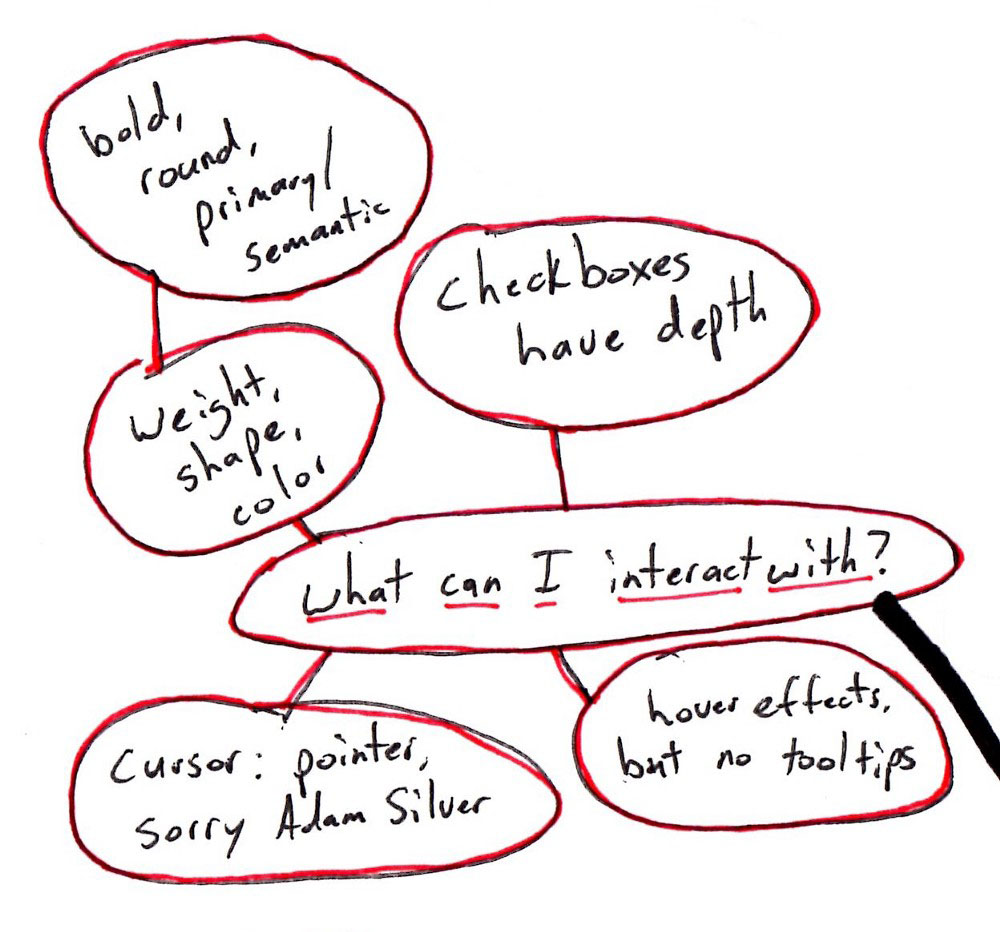 bold,
round,
primary/
semantic
checkboxes
have depth
weight,
shape,
color
What can I interact with?
cursor: pointer,
sorry Adam Silver
hover effects,
but no tooltips